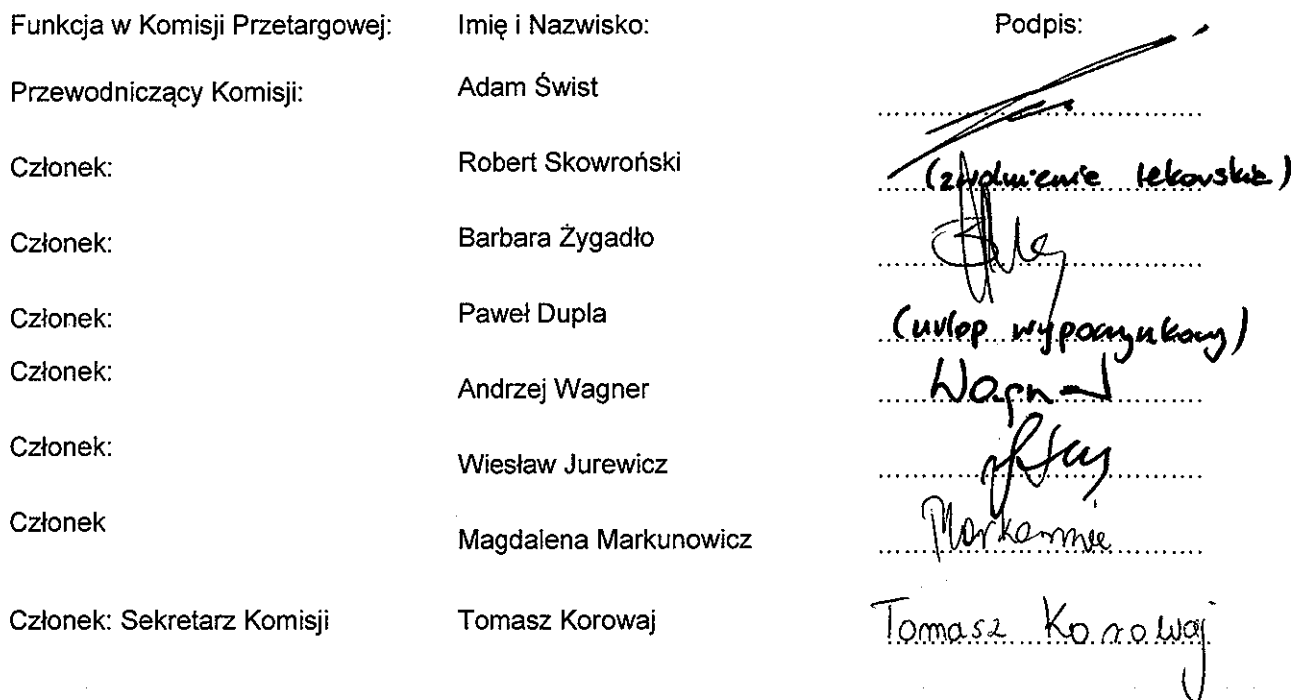 Funkcja w Komisji Przetargowej: Imię i Nazwisko: Podpis:
Przewodniczący Komisji: Adam Świst
Członek: Robert Skowroński (zwolnienie lekarskie)
Członek: Barbara Żygadło
Członek: Paweł Dupla (urlop wypoczynkowy)
Członek: Andrzej Wagner Wagner
Członek: Wiesław Jurewicz
Członek Magdalena Markunowicz
Członek: Sekretarz Komisji Tomasz Korowaj Tomasz Korowaj